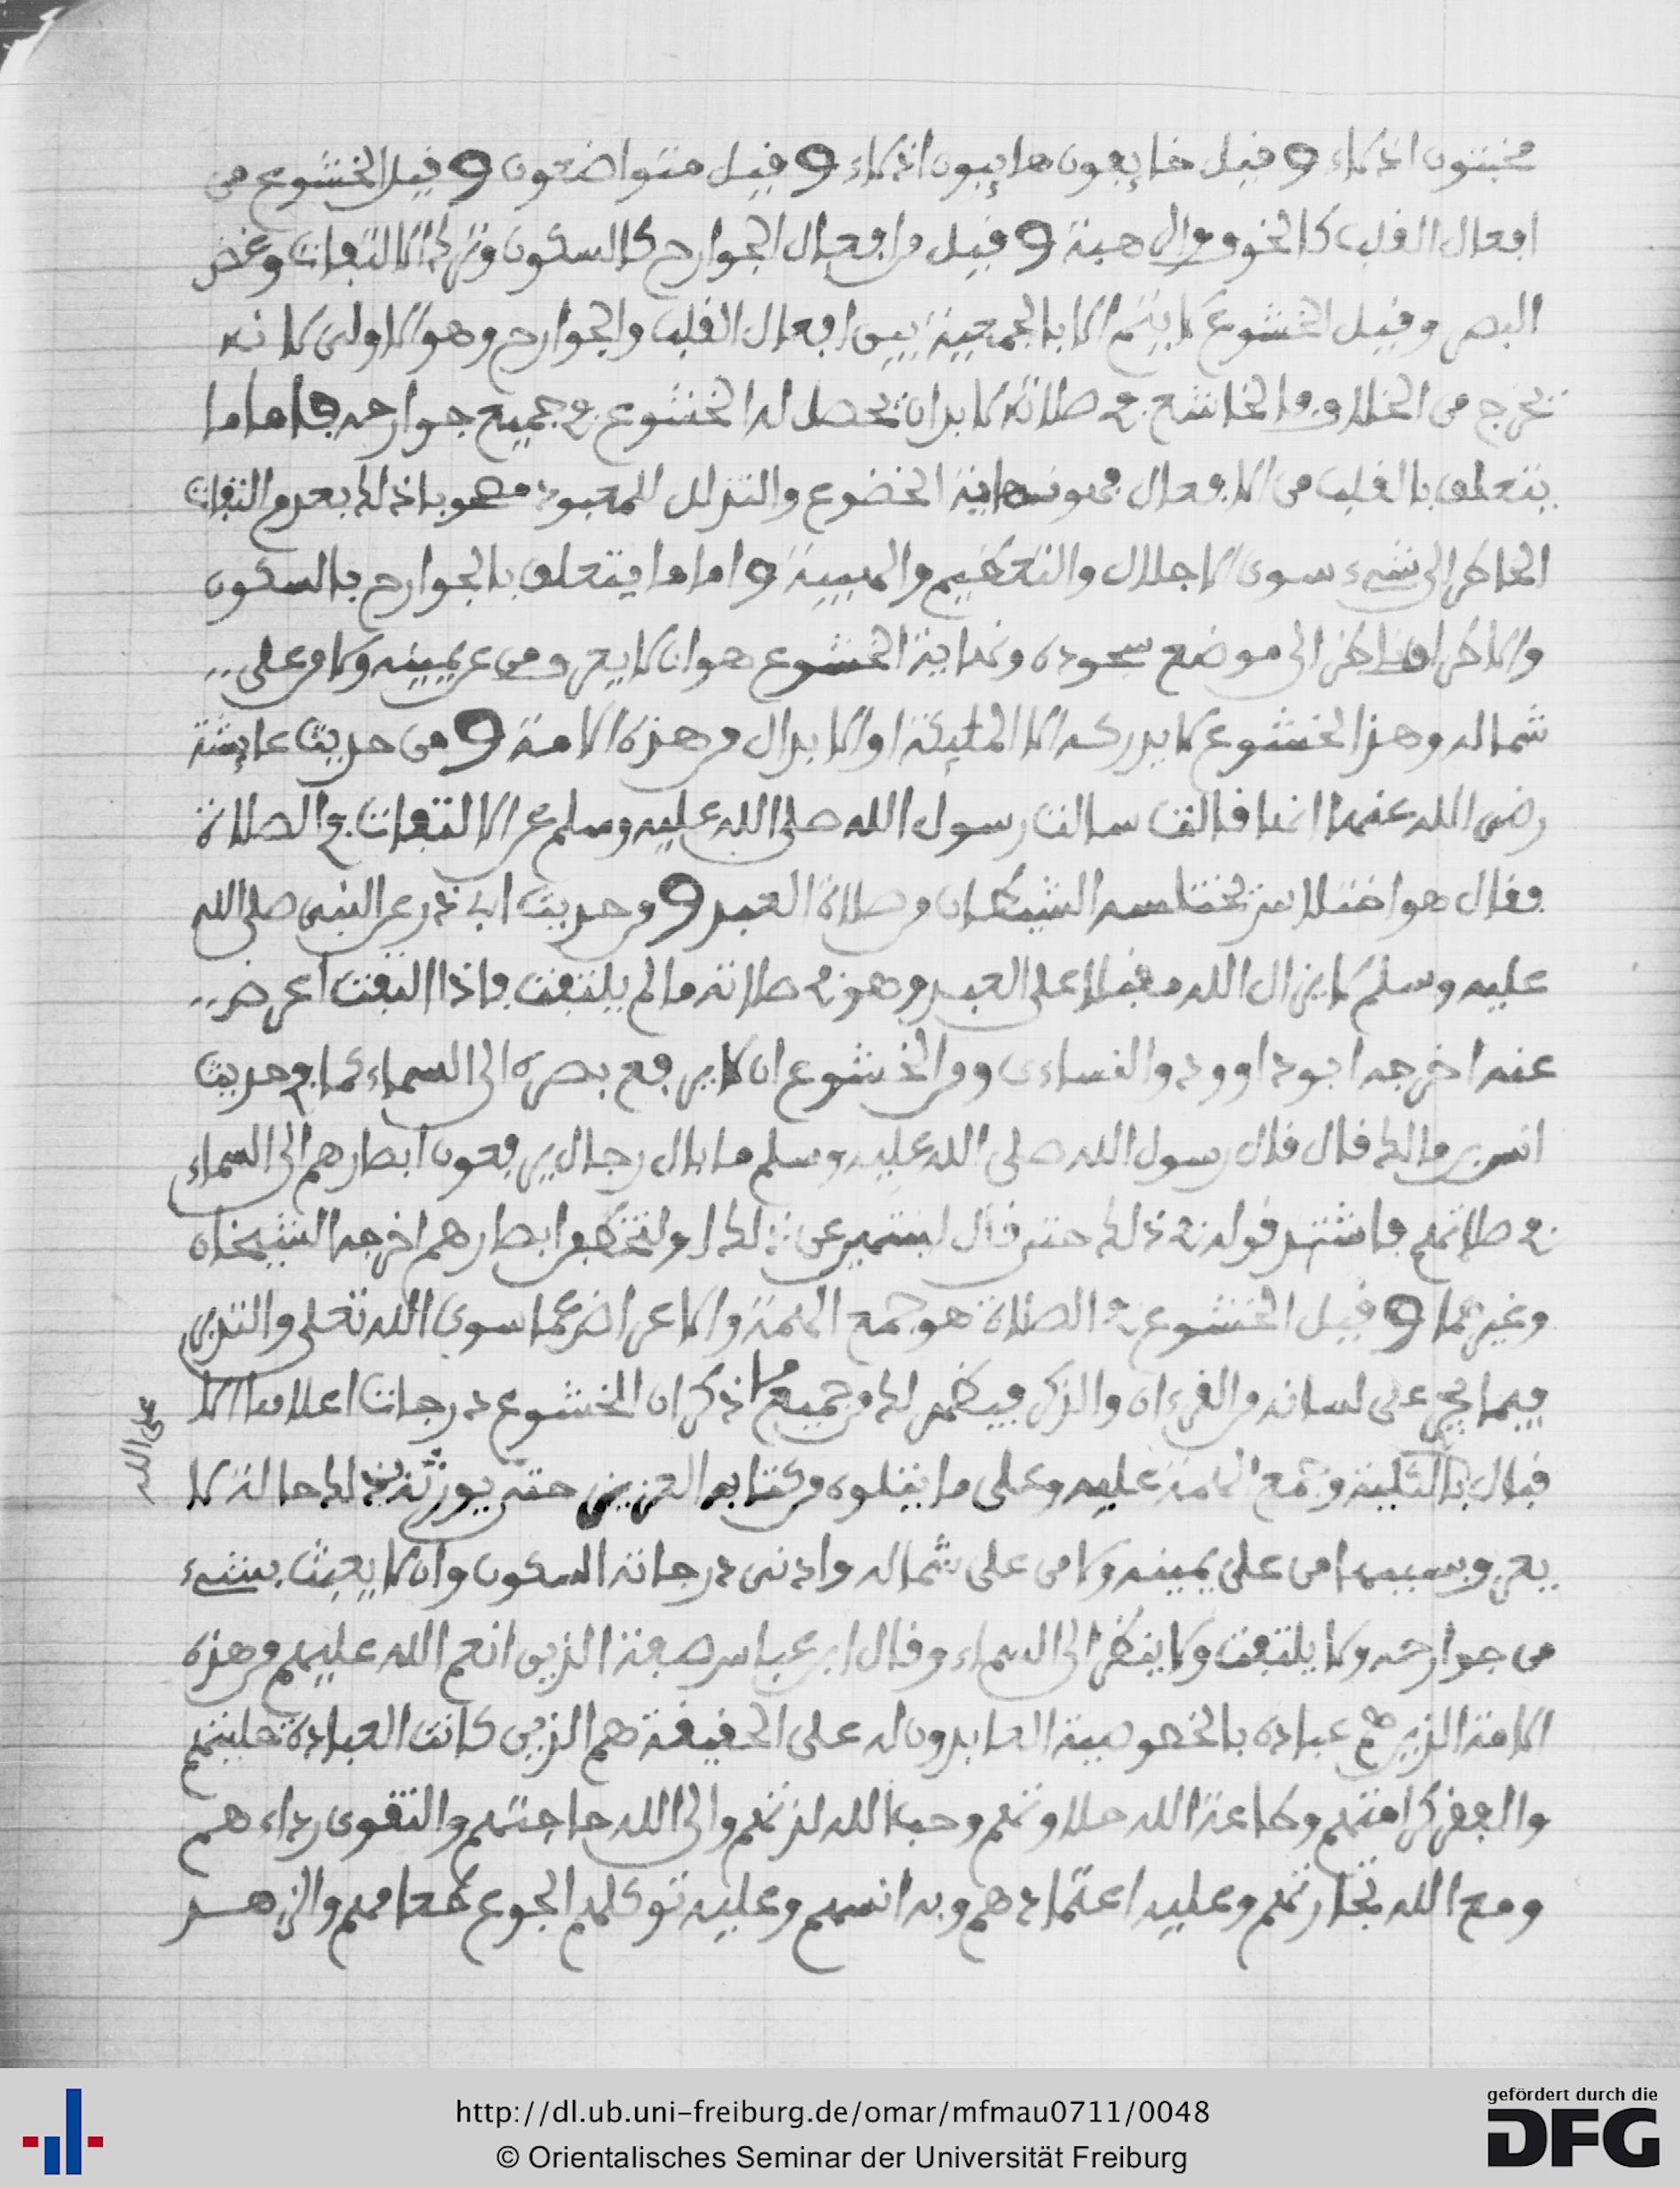 مخبتون اذلاء وقيل خايفون هايبون اذلاء وقيل متواضعون وقيل الخشوع من
افعال القلب كالخوف والرهبة وقيل من افعال الجوارح كالسكون وترك الالتفات وغض
البصر وقيل الخشوع لا يتم الا بالجمعية بين افعال القلب والجوارح وهو الاولى لانه
يخرج من الخلاف والخاشع في صلاته لابد ان يحصل له الخشوع في جميع جوارحه فاما ما
يتعلق بالقلب من الافعال فهو نهاية الخضوع والتذلل للمعبود مصحوبا ذلك بعدم التفات
الخاطر الى شيء سوى الاجلال والتعظيم والهيبة واما ما يتعلق بالجوارح بالسكون
والاطراق ناظر الى موضع سجوده ونهاية الخشوع هو ان لا يعرف من عن يمينه ولا من على
شماله وهذا الخشوع لا يدركه الا الملئكة او الابدال من هذه الامة ومن حديث عايشة
رضى الله عنها انها قالت سالت رسول الله صلى الله عليه وسلم عن الالتفات في الصلاة
فقال هو اختلاس يختلسه الشيطان من صلاة العبد ومن حديث ابي ذر عن النبى صلى الله
عليه وسلم لا يزال الله مقبلا على العبد وهو في صلاته ما لم يلتفت فاذا التفت اعرض
عنه اخرجه ابو داوود والنساءى ومن الخشوع ان لا يرفع بصره الى السماء كما في حديث
انس بن مالك قال قال رسول الله صلى الله عليه وسلم ما بال رجال يرفعون ابصارهم الى السماء
في صلاتهم فاشتد قوله في ذلك حتى قال لينتهين عن ذلك او لتخطفن ابصارهم اخرجه الشيخان
وغيرهما وقيل الخشوع في الصلاة هو جمع الهمة والاعراض عما سوى الله تعلى والتدبر
فيما يجرى على لسانه من القرءان والذكر فيظهر لك من جميع ما ذكر ان الخشوع درجات اعلاها الا
على الله
قبال بالكلية وجمع الهمة عليه وعلى ما يتلوه من كتابه العزيز حتى يورثه ذلك حالة لا
يعرف بسببها من على يمينه ولا من على شماله وادنى درجاته السكون وان لا يعبث بشيء
من جوارحه ولا يلتفت ولا ينظر الى السماء وقال ابن عباس صفة الذين انعم الله عليهم من هذه
الامة الذين هم عباده بالخصوصية العابدون له على الحقيقة هم الذين كانت العبادة حليتهم
والفقر كرامتهم وطاعة الله حلاوتهم وحب الله لذتهم والى الله حاجتهم والتقوى رداءهم
ومع الله تجارتهم وعليه اعتمادهم وبه انسهم وعليه توكلهم الجوع طعامهم والزهد
http://dl.ub.uni-freiburg.de/omar/mfmau0711/0048
© Orientalisches Seminar der Universität Freiburg
gefördert durch die
DFG